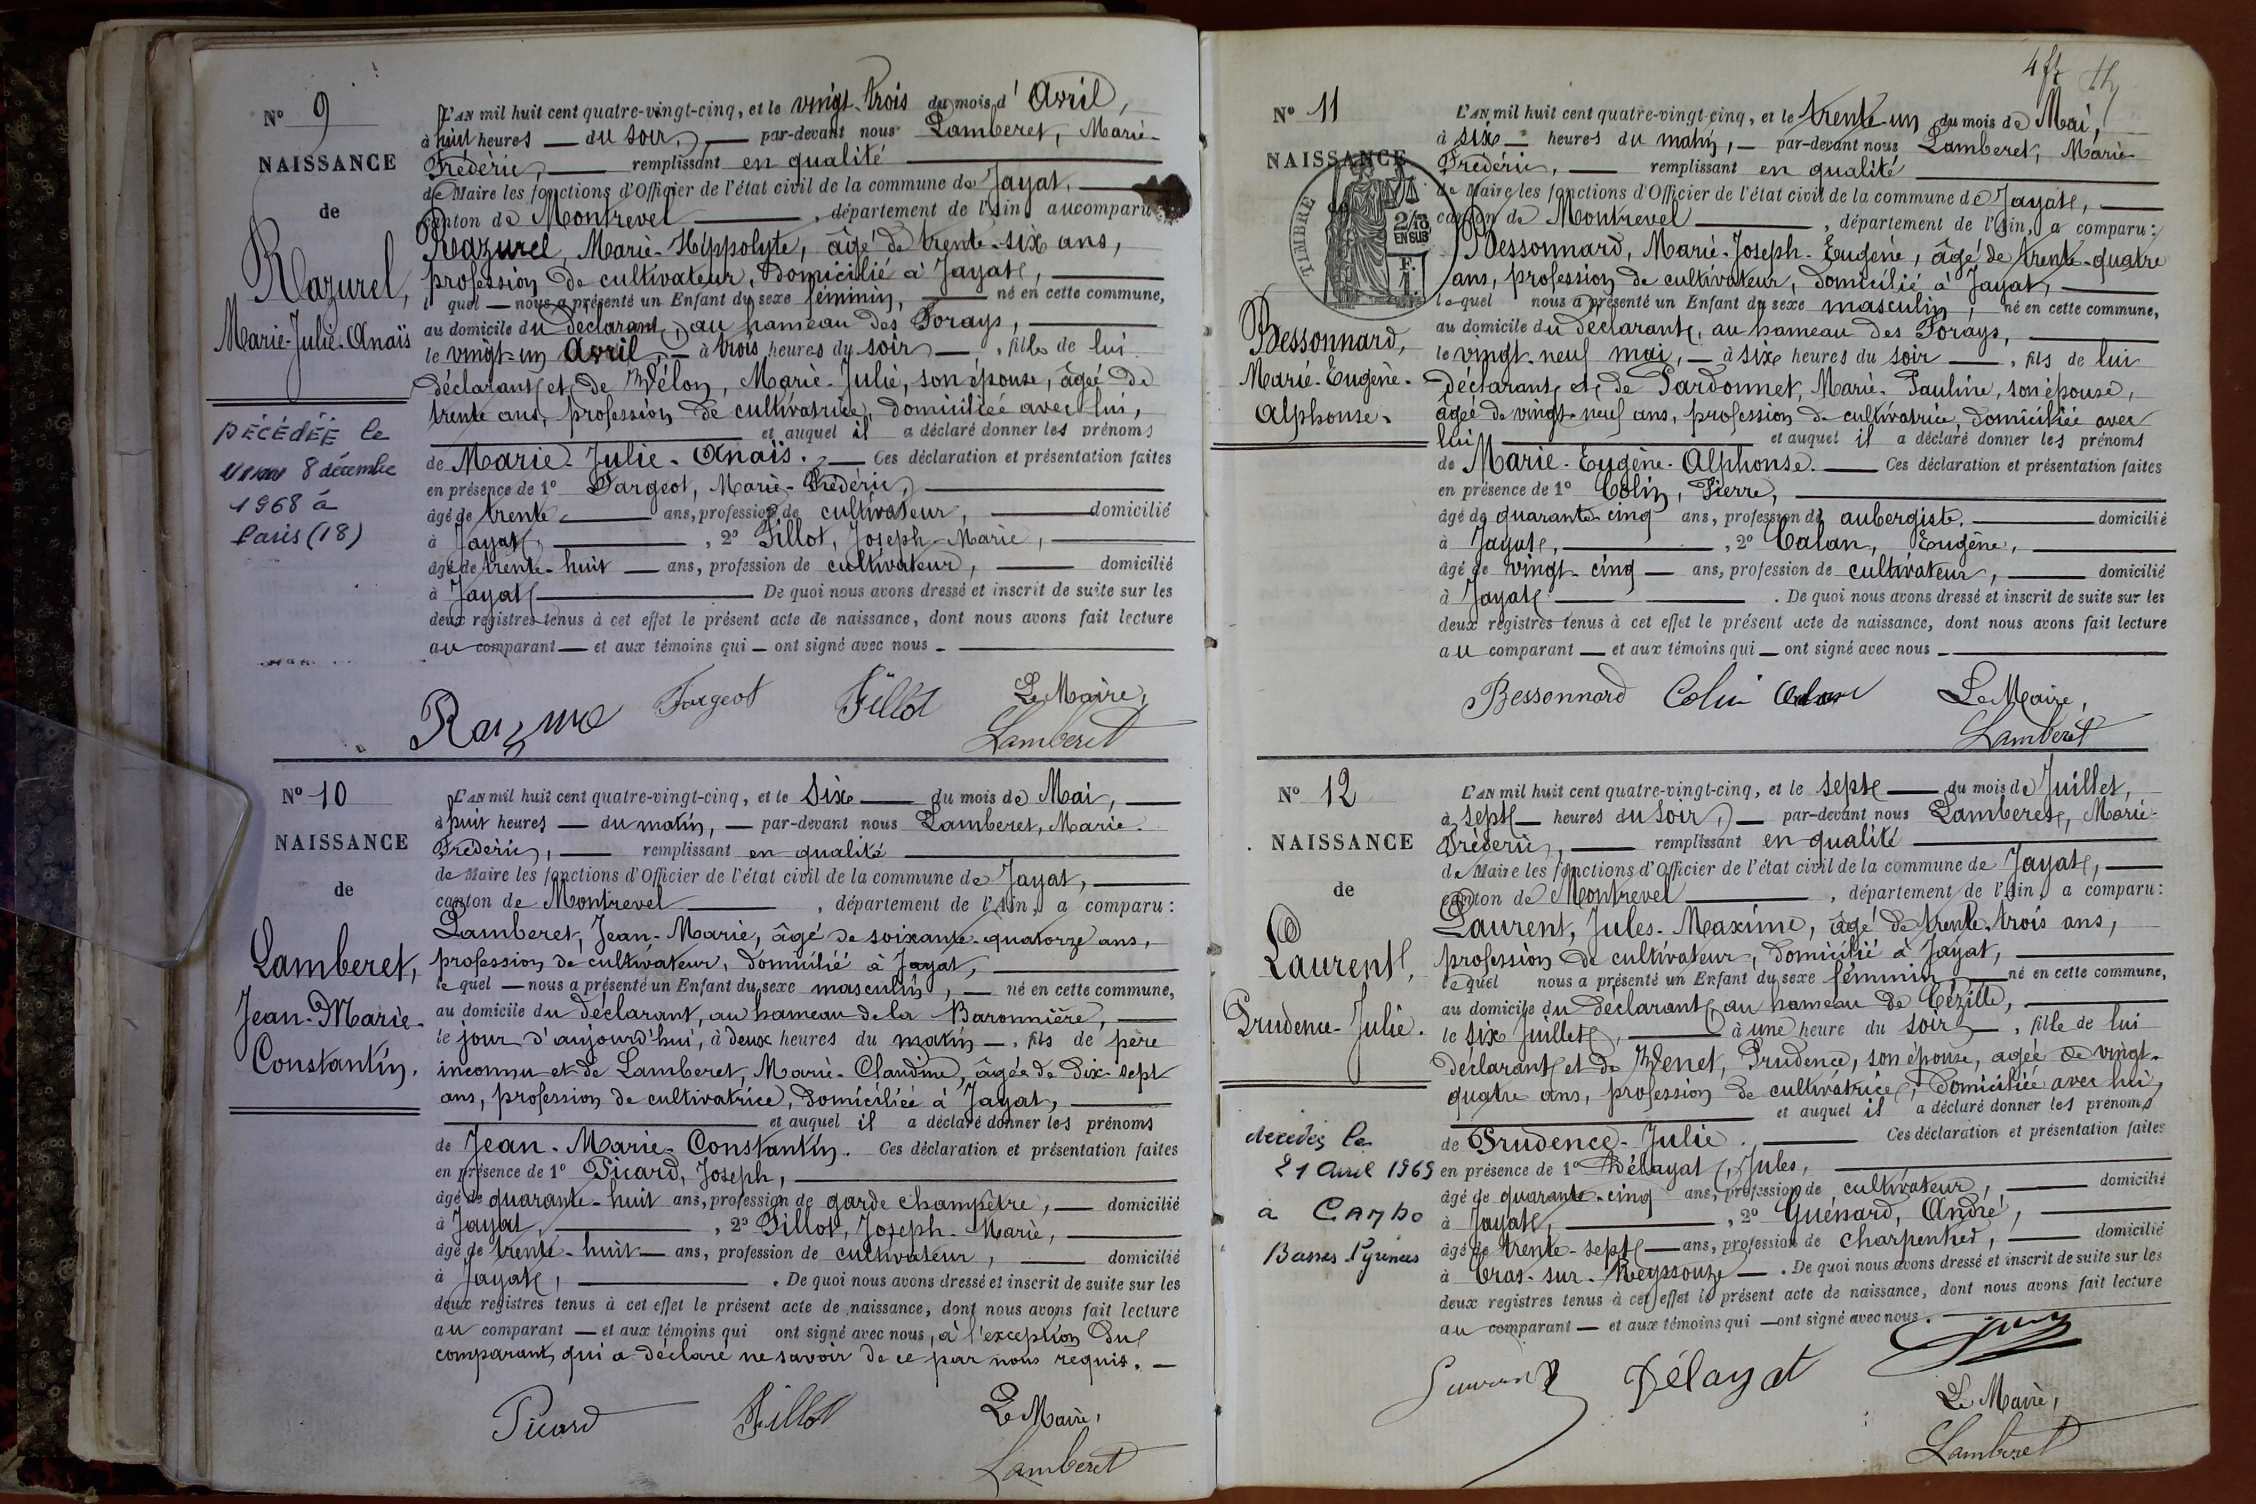 No 9
NAISSANCE
de
Razurel,
Marie-Julie-Anaïs
DÉCÉDÉE le
8 décembre
1968 à
Paris (18)
L'AN mil huit cent quatre-vingt-cinq, et le vingt-trois du mois d'Avril,
à huit heures — du soir, — par-devant nous Lamberet, Marie-
Frédéric, — remplissant en qualité
de Maire les fonctions d'Officier de l'état civil de la commune de Jayat,
canton de Montrevel, département de l'Ain a comparu
Razurel, Marie-Hippolyte, âgé de trente-six ans,
profession de cultivateur, domicilié à Jayat,
lequel — nous a présenté un Enfant du sexe féminin, — né en cette commune,
au domicile du déclarant, au hameau des Forays,
le vingt-un Avril, — à trois heures du soir —, fille de lui
déclarant et de Vélon, Marie-Julie, son épouse, âgée de
trente ans, profession de cultivatrice, domiciliée avec lui,
et auquel il a déclaré donner les prénoms
de Marie-Julie-Anaïs. — Ces déclaration et présentation faites
en présence de 1o Fargeot, Marie-Frédéric,
âgé de trente — ans, profession de cultivateur, — domicilié
à Jayat, — , 2o Fillot, Joseph-Marie,
âgé de trente-huit — ans, profession de cultivateur, — domicilié
à Jayat — De quoi nous avons dressé et inscrit de suite sur les
deux registres tenus à cet effet le présent acte de naissance, dont nous avons fait lecture
au comparant — et aux témoins qui — ont signé avec nous —
Fargeot Fillot Le Maire,
Lamberet
No 10
NAISSANCE
de
Lamberet,
Jean-Marie-
Constantin.
L'AN mil huit cent quatre-vingt-cinq, et le six — du mois de Mai, —
à huit heures — du matin, — par-devant nous Lamberet, Marie-
Frédéric, — remplissant en qualité
de Maire les fonctions d'Officier de l'état civil de la commune de Jayat,
canton de Montrevel — , département de l'Ain, a comparu :
Lamberet, Jean-Marie, âgé de soixante-quatorze ans,
profession de cultivateur, domicilié à Jayat,
lequel — nous a présenté un Enfant du sexe masculin, — né en cette commune,
au domicile du déclarant, au hameau de la Baronnière,
le jour d'aujourd'hui, à deux heures du matin —, fils de père
inconnu et de Lamberet, Marie-Claudine, âgée de dix-sept
ans, profession de cultivatrice, domiciliée à Jayat,
et auquel il a déclaré donner les prénoms
de Jean-Marie-Constantin. Ces déclaration et présentation faites
en présence de 1o Picard, Joseph,
âgé de quarante-huit ans, profession de garde champêtre, — domicilié
à Jayat, — , 2o Fillot, Joseph-Marie,
âgé de trente-huit — ans, profession de cultivateur, — domicilié
à Jayat, — . De quoi nous avons dressé et inscrit de suite sur les
deux registres tenus à cet effet le présent acte de naissance, dont nous avons fait lecture
au comparant — et aux témoins qui ont signé avec nous, à l'exception du
comparant qui a déclaré ne savoir de ce par nous requis. —
Picard Fillot Le Maire,
Lamberet
No 11
NAISSANCE
TIMBRE
2/10
EN SUS
Bessonnard,
Marie-Eugène-
Alphonse.
L'AN mil huit cent quatre-vingt-cinq, et le trente-un du mois de Mai,
à six — heures du matin, — par-devant nous Lamberet, Marie-
Frédéric, — remplissant en qualité
de Maire les fonctions d'Officier de l'état civil de la commune de Jayat,
canton de Montrevel — , département de l'Ain, a comparu :
Bessonnard, Marie-Joseph-Eugène, âgé de trente-quatre
ans, profession de cultivateur, domicilié à Jayat,
lequel nous a présenté un Enfant du sexe masculin, né en cette commune,
au domicile du déclarant, au hameau des Forays,
le vingt-neuf mai, — à six heures du soir —, fils de lui
déclarant et de Pardonnet, Marie-Pauline, son épouse,
âgée de vingt-neuf ans, profession de cultivatrice, domiciliée avec
lui — et auquel il a déclaré donner les prénoms
de Marie-Eugène-Alphonse. — Ces déclaration et présentation faites
en présence de 1o Colin, Pierre,
âgé de quarante-cinq ans, profession de aubergiste. — domicilié
à Jayat, — , 2o Calan, Eugène,
âgé de vingt-cinq — ans, profession de cultivateur, — domicilié
à Jayat — . De quoi nous avons dressé et inscrit de suite sur les
deux registres tenus à cet effet le présent acte de naissance, dont nous avons fait lecture
au comparant — et aux témoins qui — ont signé avec nous —
Bessonnard Colin Le Maire,
Lamberet
No 12
NAISSANCE
de
Laurent,
Prudence-Julie.
décédée le
21 avril 1969
à CAMbo
Basses Pyrénées
L'AN mil huit cent quatre-vingt-cinq, et le sept — du mois de Juillet,
à sept — heures du soir, — par-devant nous Lamberet, Marie-
Frédéric, — remplissant en qualité
de Maire les fonctions d'Officier de l'état civil de la commune de Jayat,
canton de Montrevel — , département de l'Ain, a comparu :
Laurent, Jules-Maxime, âgé de trente-trois ans,
profession de cultivateur, domicilié à Jayat,
lequel nous a présenté un Enfant du sexe féminin — né en cette commune,
au domicile du déclarant, au hameau de Cézille,
le six Juillet, — à une heure du soir —, fille de lui
déclarant et de Venet, Prudence, son épouse, âgée de vingt-
quatre ans, profession de cultivatrice, domiciliée avec lui,
et auquel il a déclaré donner les prénoms
de Prudence-Julie. — Ces déclaration et présentation faites
en présence de 1o Délayat, Jules,
âgé de quarante-cinq ans, profession de cultivateur, — domicilié
à Jayat, — , 2o Guénard, André,
âgé de trente-sept — ans, profession de charpentier, — domicilié
à Cras-sur-Reyssouze — . De quoi nous avons dressé et inscrit de suite sur les
deux registres tenus à cet effet le présent acte de naissance, dont nous avons fait lecture
au comparant — et aux témoins qui — ont signé avec nous.
Délayat
Le Maire,
Lamberet